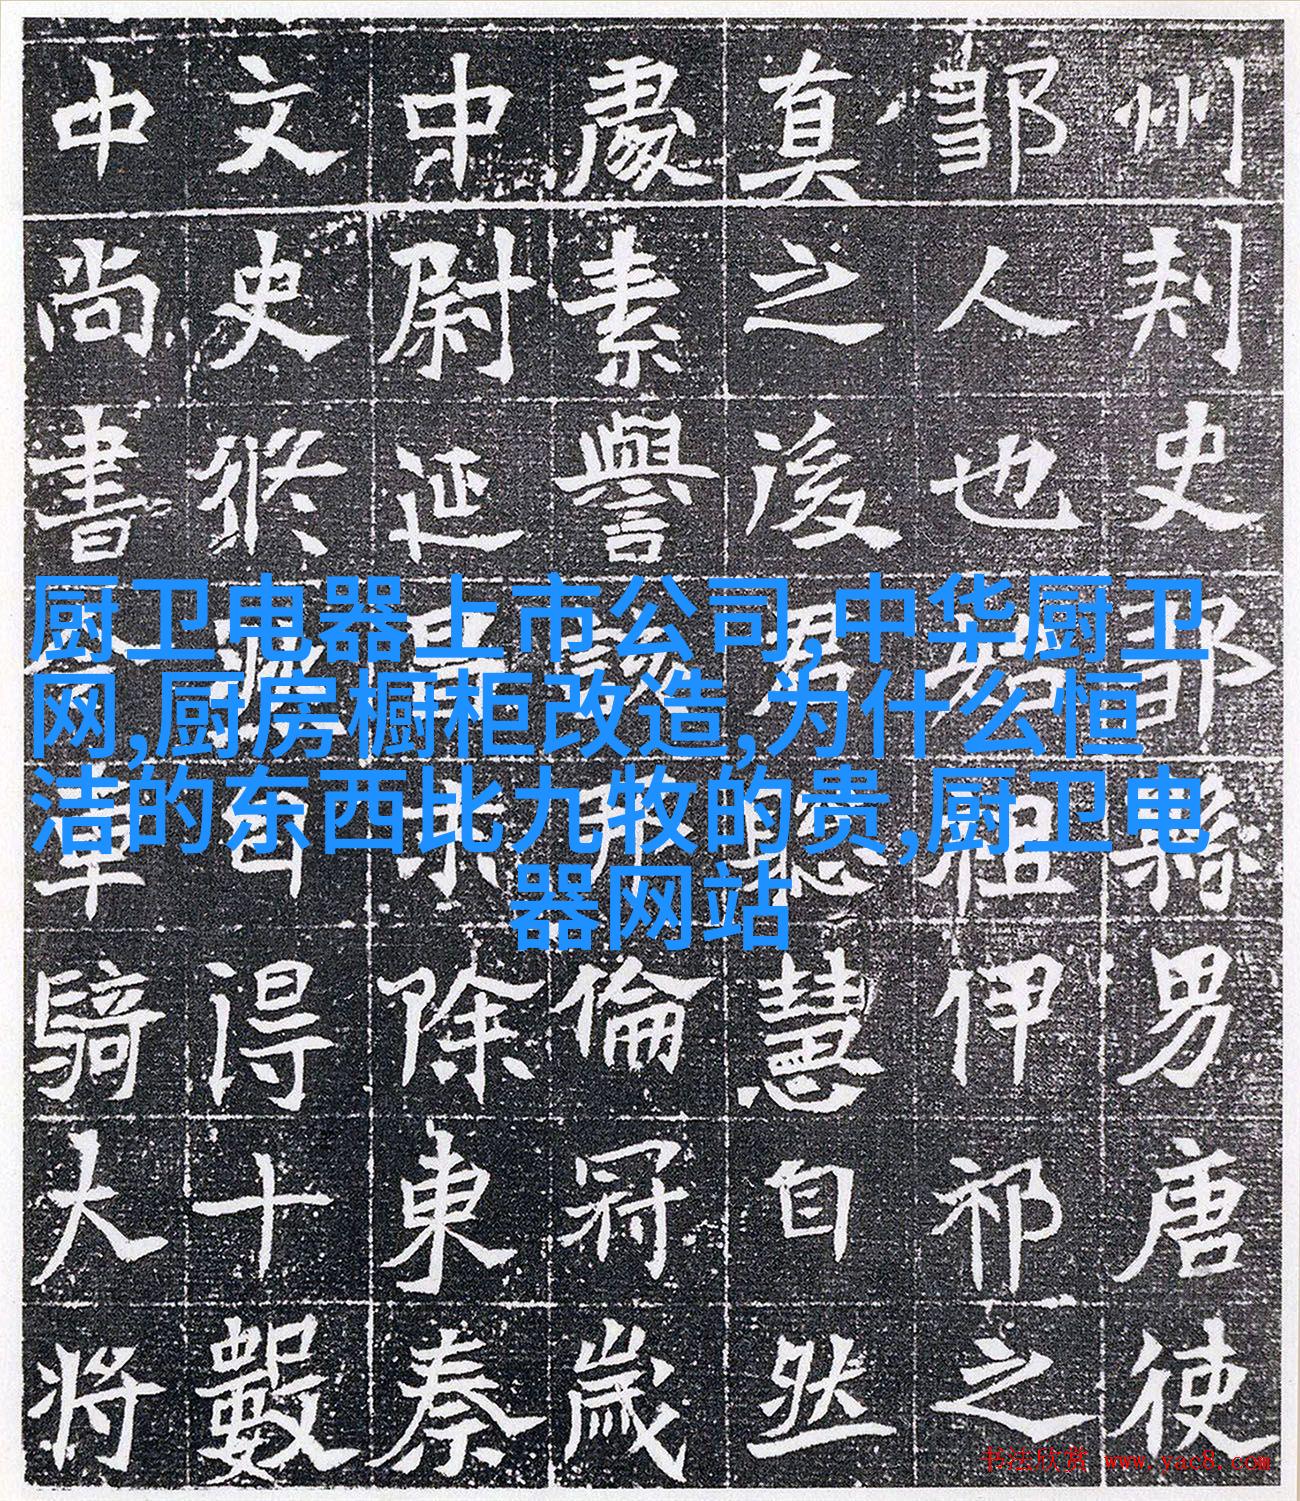 州刺史鄒縣男唐使
鄒人也祖伊祁之
真之後君聰慧自然
處素譽談倫冠歲
中尉延昌末除東秦
文史修得十數
中尚書令車騎大將
厨卫电器上市公司,中华厨卫
网,厨房橱柜改造,为什么恒
洁的东西比九牧的贵,厨卫电
器网站
书法欣赏 www.yac8.com